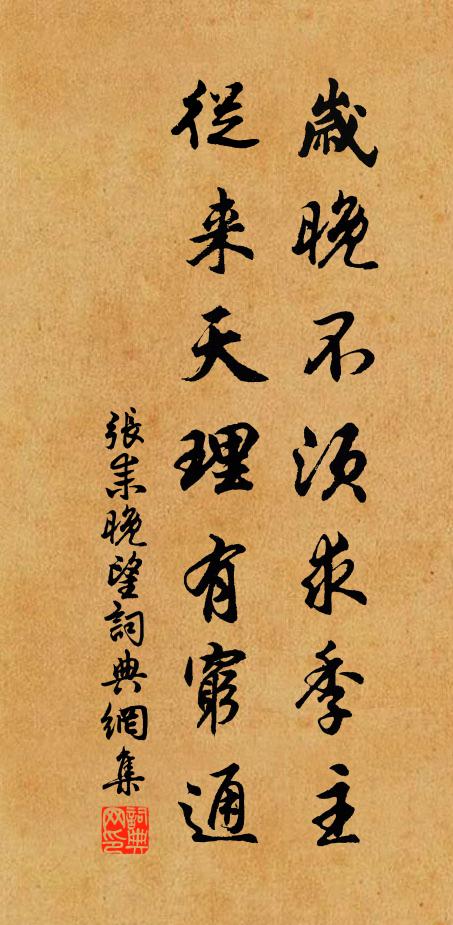 歲晚不須求季主
從来天理有窮通
張耒晚望詞典網集
詞典网印